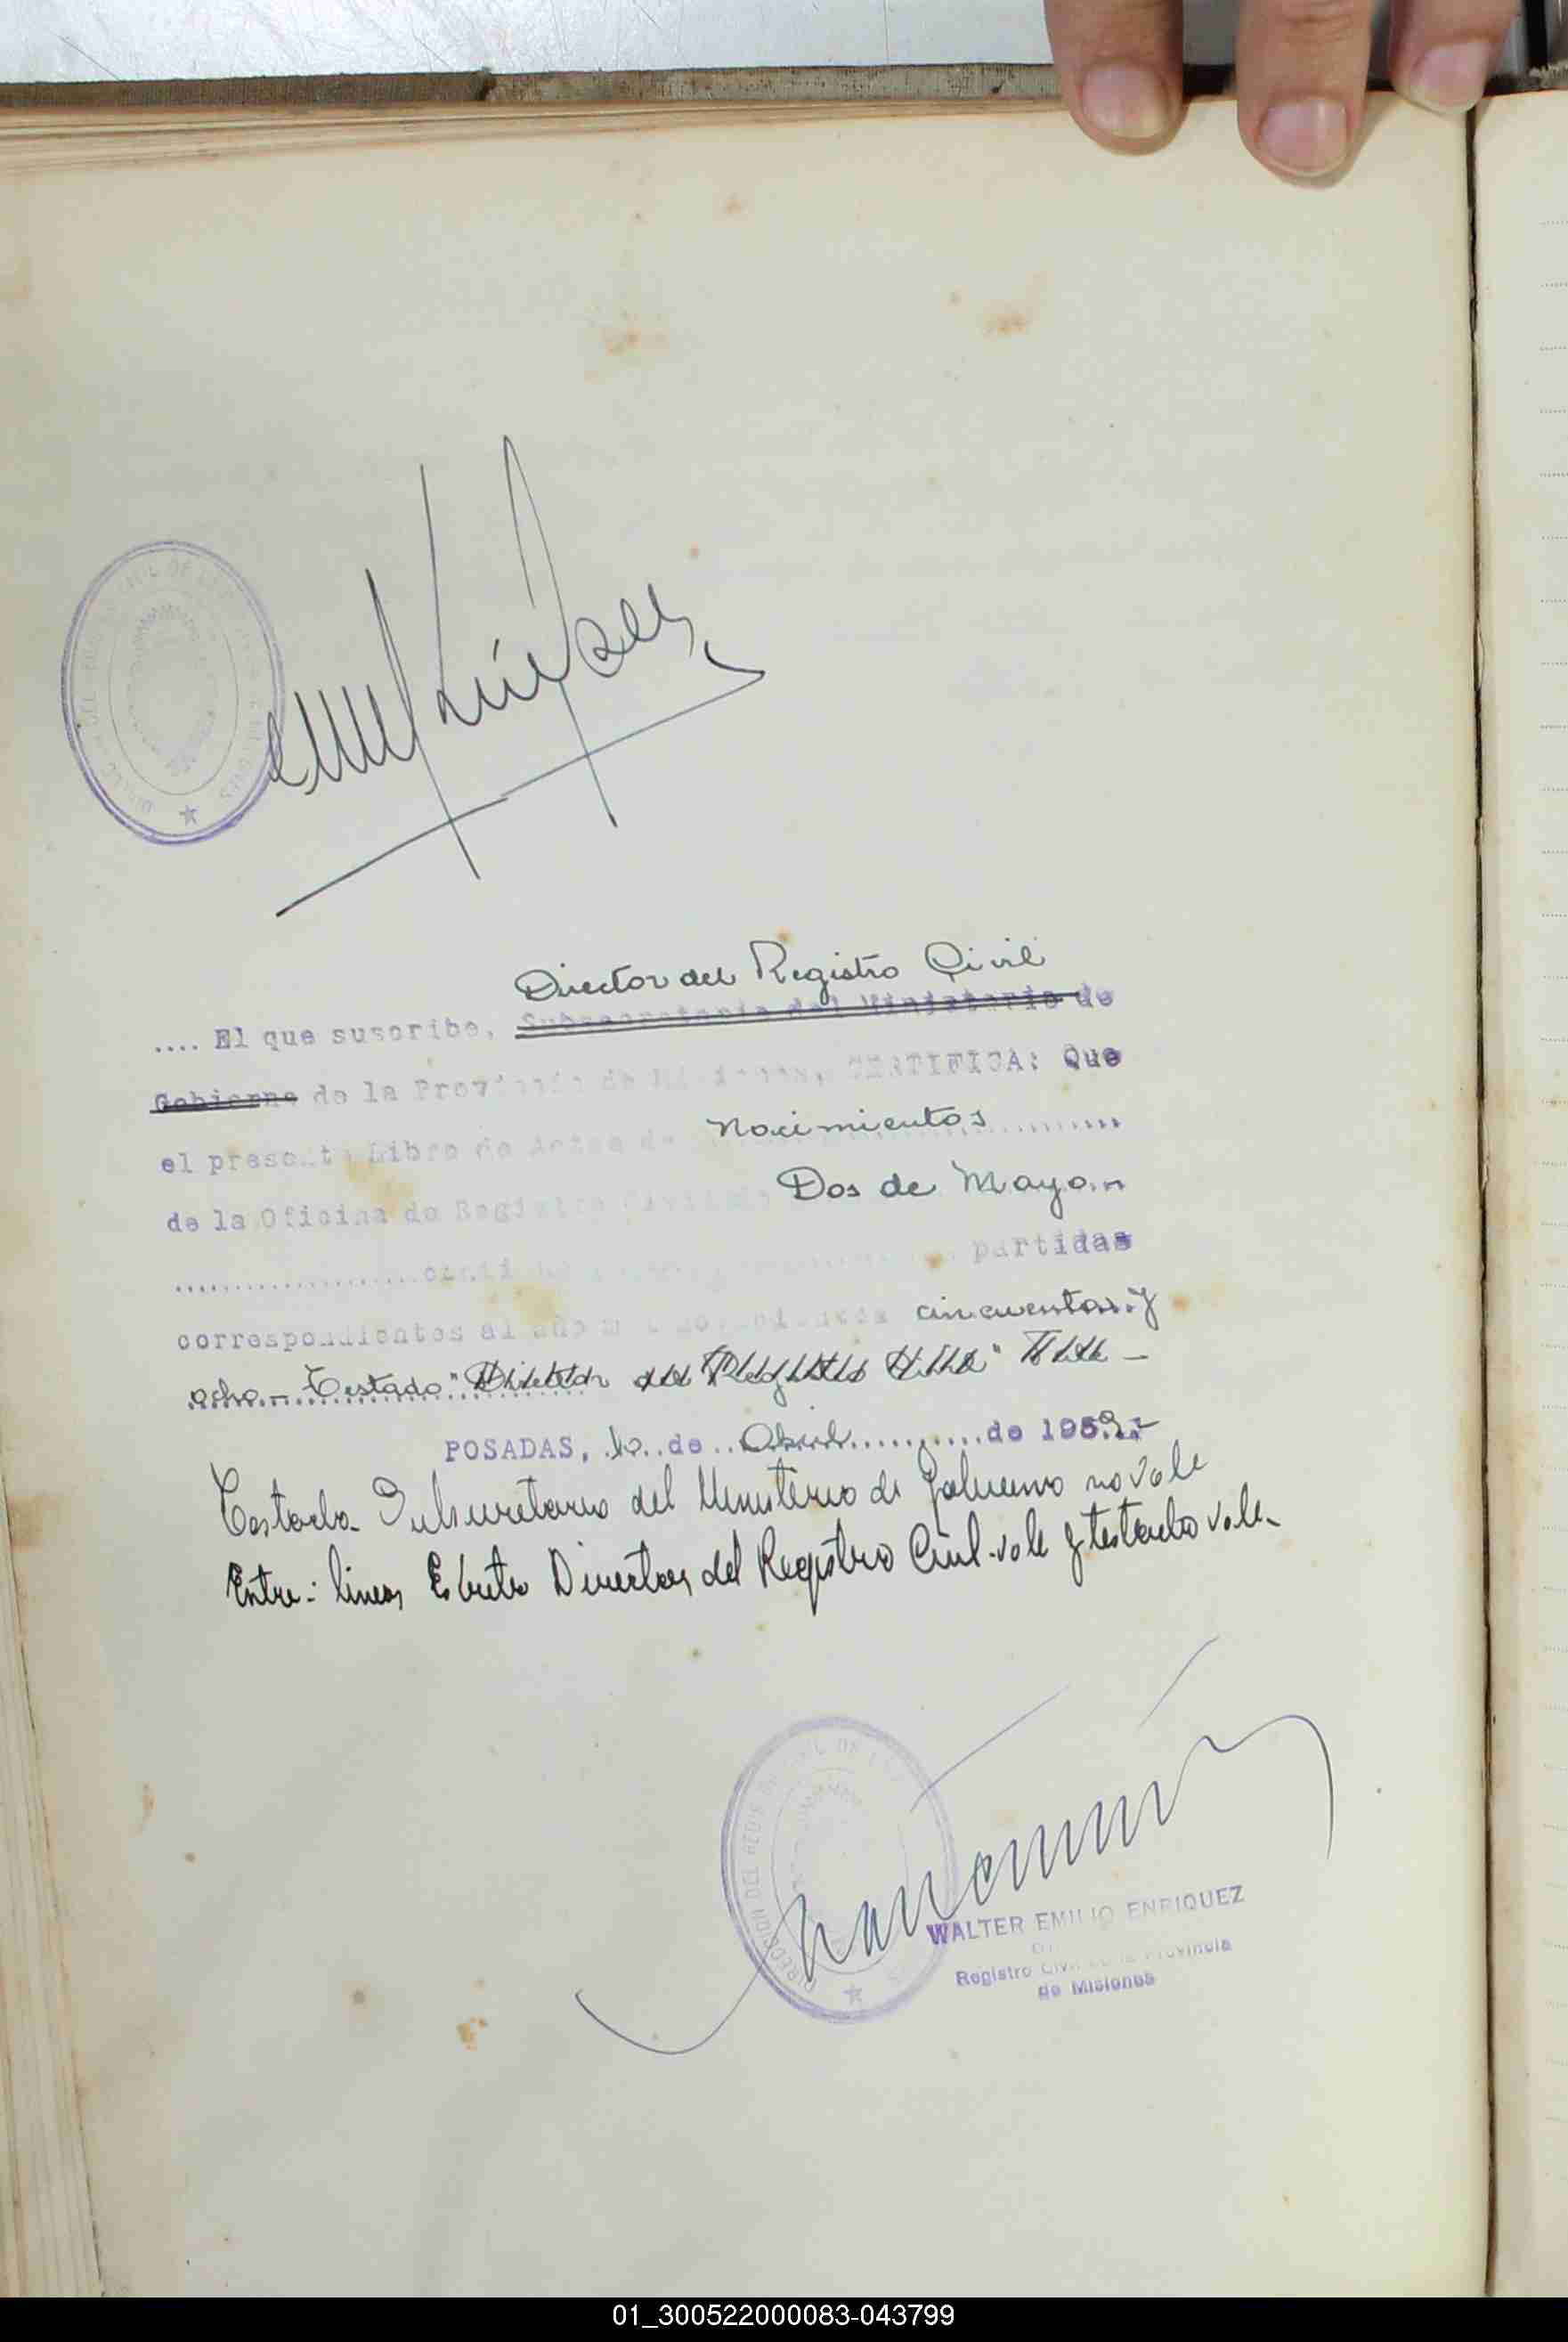 Director del Registro Civil
.... El que suscribe, Subsecretario del Ministerio de
Gobierno de la Provincia de Misiones, CERTIFICA: Que
el presente Libro de Actas de Nacimientos
de la Oficina de Registro Civil de Dos de Mayo
partidas
correspondientes al año mil novecientos cincuenta y
ocho.- Testado "Director del Registro Civil" Vale -
POSADAS, 10 de Abril de 1959.-
Testado Subsecretario del Ministerio de Gobierno no vale
Entre: lineas Director del Registro Civil-vale y testado vale-
DIRECCION DEL REGISTRO CIVIL DE LA
WALTER EMILIO ENRIQUEZ
Registro Civil de la Provincia
de Misiones
01_300522000083-043799